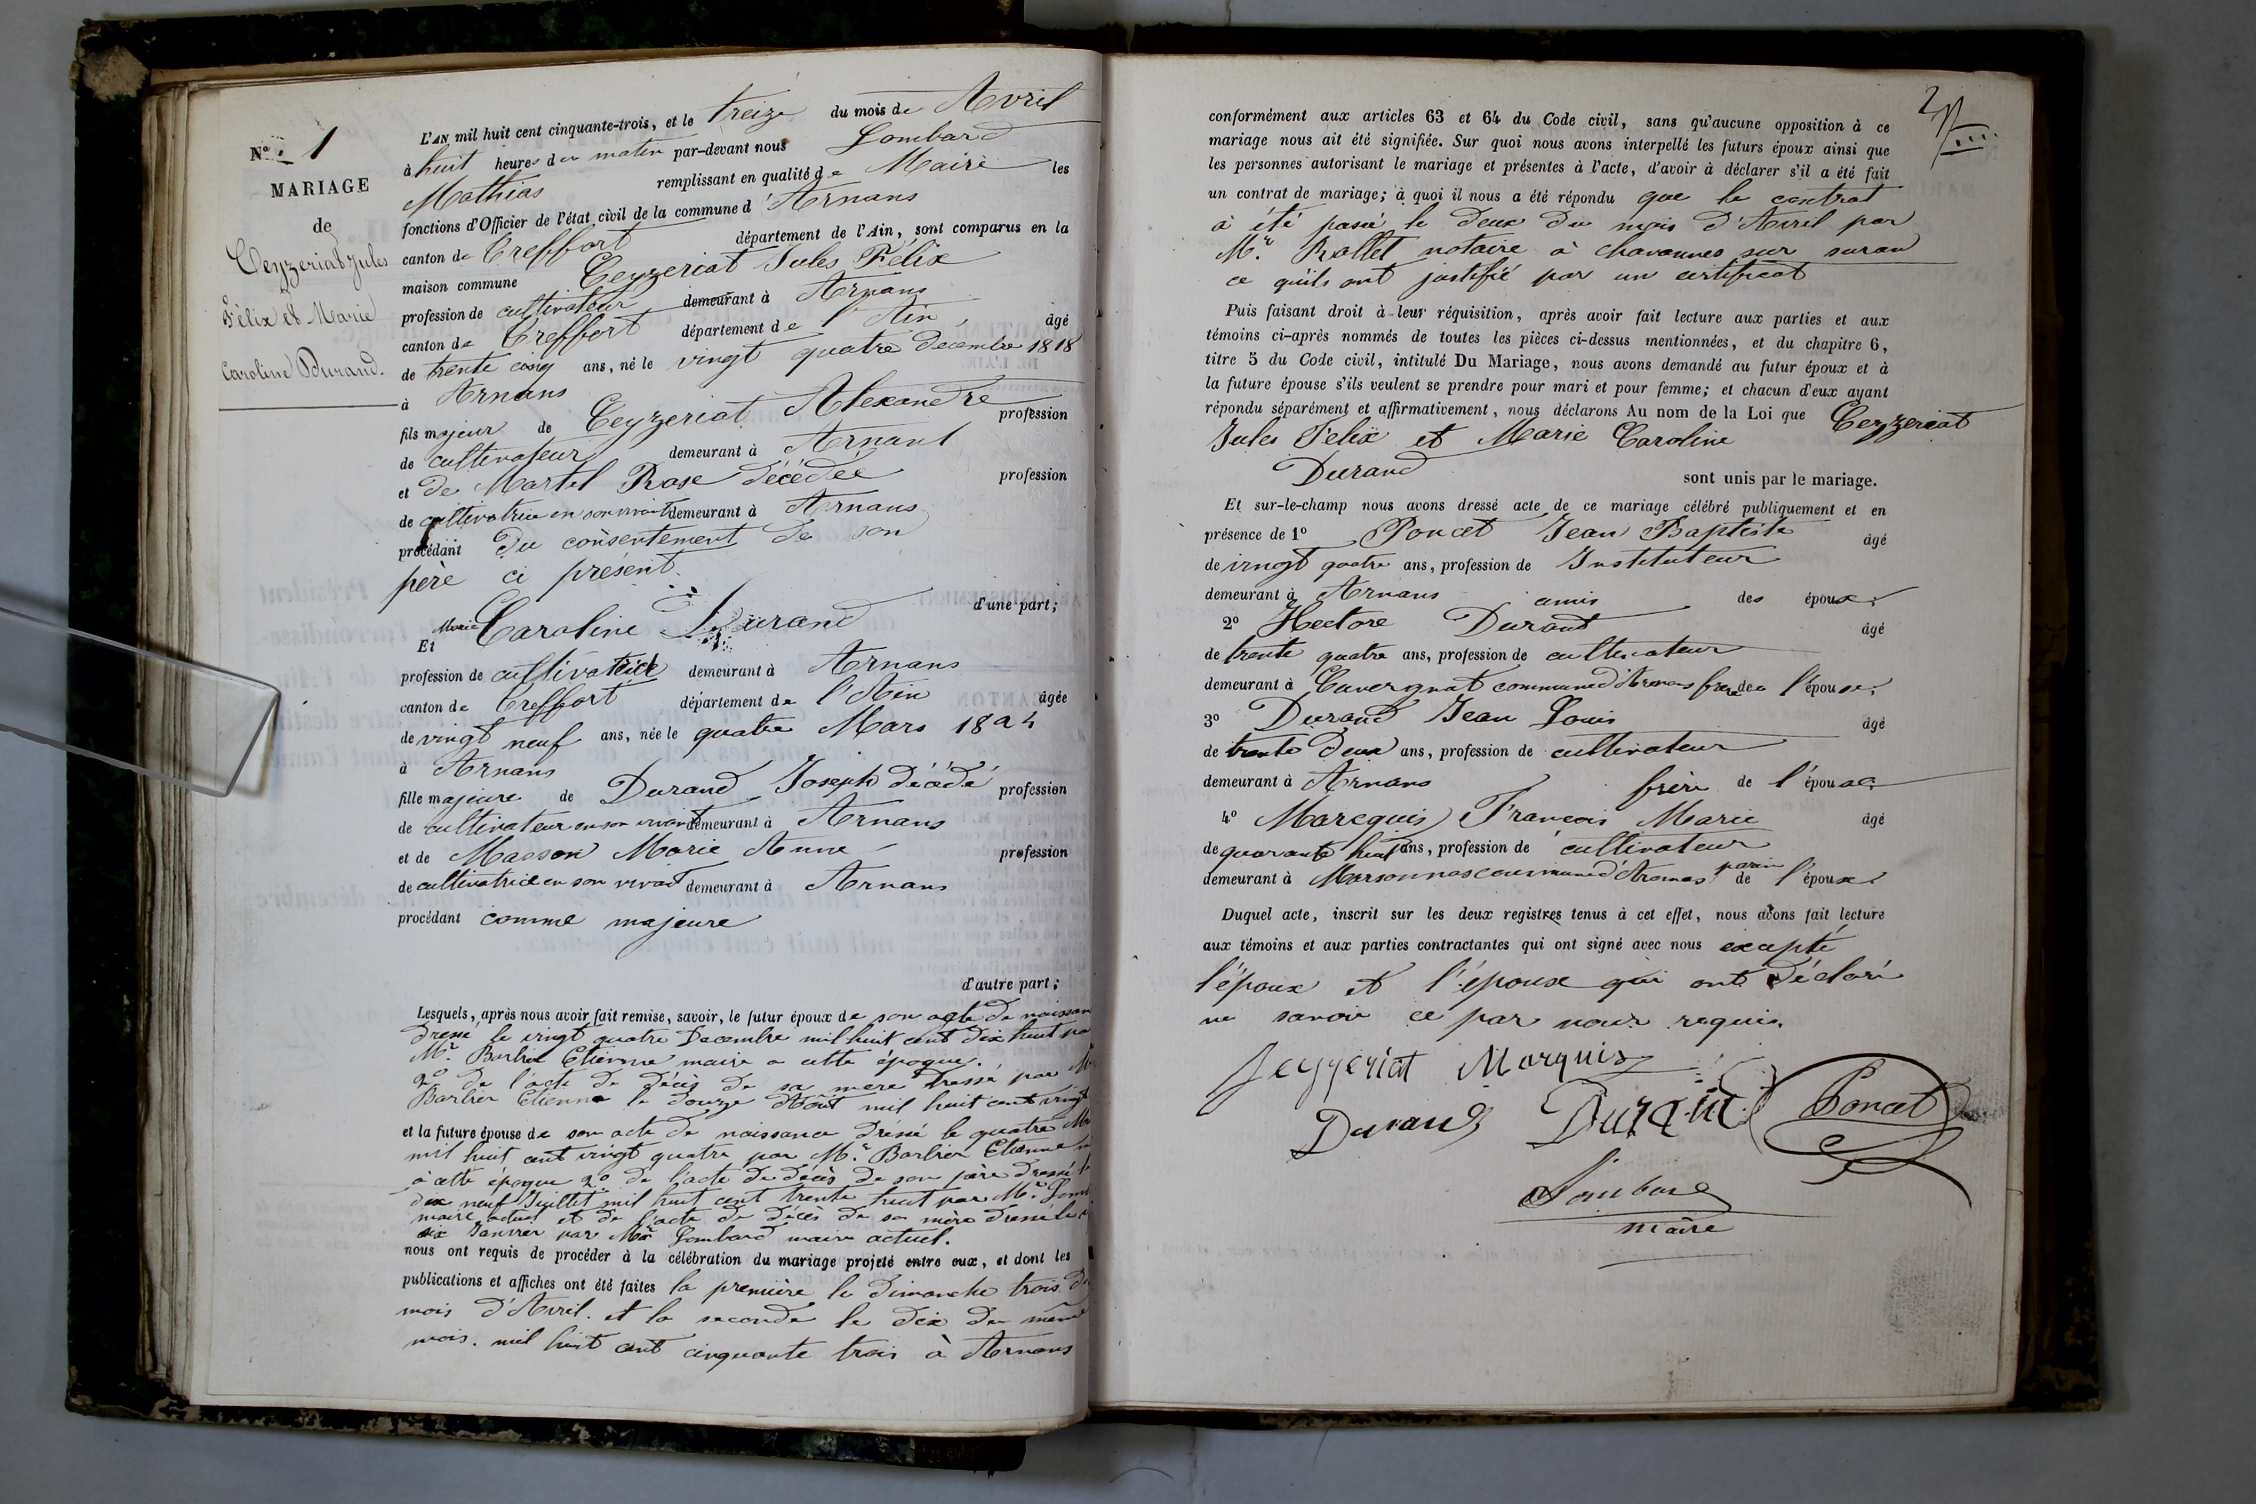 N.º 1
MARIAGE
de
Ceyzeriat Jules
Félix et Marie
Caroline Durand.
L'AN mil huit cent cinquante-trois, et le treize du mois de Avril
à huit heures du matin par-devant nous Lombard
Mathias remplissant en qualité de Maire les
fonctions d'Officier de l'état civil de la commune d'Arnans
canton de Treffort département de l'Ain, sont comparus en la
maison commune Ceyzeriat Jules Félix
profession de cultivateur demeurant à Arnans
canton de Treffort département de l'Ain âgé
de trente cinq ans, né le vingt quatre décembre 1818
à Arnans
fils majeur de Ceyzeriat Alexandre profession
de cultivateur demeurant à Arnans
et de Martel Rose décédée profession
de cultivatrice en son vivant demeurant à Arnans
procédant du consentement de son
père ci présent
d'une part;
Et Marie Caroline Durand
profession de cultivatrice demeurant à Arnans
canton de Treffort département de l'Ain âgée
de vingt neuf ans, née le quatre Mars 1824
à Arnans
fille majeure de Durand Joseph décédé profession
de cultivateur en son vivant demeurant à Arnans
et de Masson Marie Anne profession
de cultivatrice en son vivant demeurant à Arnans
procédant comme majeure
d'autre part;
Lesquels, après nous avoir fait remise, savoir, le futur époux de son acte de naissan
dressé le vingt quatre Decembre mil huit cent dix huit pa
Mr. Barbier Etienne maire a cette époque.
2º de l'acte de décès de sa mère dressé par Mr
Barbier Etienne le douze Août mil huit cent vingt
et la future épouse de son acte de naissance dressé le quatre Ma
mil huit cent vingt quatre par Mr. Barbier Etienne
à cette époque 2º de l'acte de décès de son père dressé le
dix neuf Juillet mil huit cent trente huit par Mr. Lom
maire actuel et de l'acte de décès de sa mère dressé le
six Janvier par Mr Lombard maire actuel.
nous ont requis de procéder à la célébration du mariage projeté entre eux, et dont les
publications et affiches ont été faites la première le dimanche trois du
mois d'Avril. et la seconde le dix du même
mois. mil huit cent cinquante trois à Arnans
2
conformément aux articles 63 et 64 du Code civil, sans qu'aucune opposition à ce
mariage nous ait été signifiée. Sur quoi nous avons interpellé les futurs époux ainsi que
les personnes autorisant le mariage et présentes à l'acte, d'avoir à déclarer s'il a été fait
un contrat de mariage; à quoi il nous a été répondu que le contrat
à été passé le deux du mois d'Avril par
Mr. Rollet notaire à chavannes sur suran
ce qu'ils ont justifié par un certificat
Puis faisant droit à leur réquisition, après avoir fait lecture aux parties et aux
témoins ci-après nommés de toutes les pièces ci-dessus mentionnées, et du chapitre 6,
titre 5 du Code civil, intitulé Du Mariage, nous avons demandé au futur époux et à
la future épouse s'ils veulent se prendre pour mari et pour femme; et chacun d'eux ayant
répondu séparément et affirmativement, nous déclarons Au nom de la Loi que Ceyzeriat
Jules Félix et Marie Caroline
Durand sont unis par le mariage.
Et sur-le-champ nous avons dressé acte de ce mariage célébré publiquement et en
présence de 1º Poncet Jean Baptiste âgé
de vingt quatre ans, profession de Instituteur
demeurant à Arnans amis des époux.
2º Hectore Durand âgé
de trente quatre ans, profession de cultivateur
demeurant à Cuvergnat commune d'Arnans frère de l'épouse.
3º Durand Jean Louis âgé
de trente deux ans, profession de cultivateur
demeurant à Arnans frère de l'épouse.
4º Marcquis François Marie âgé
de quarante huit ans, profession de cultivateur
demeurant à Marsonnas commune d'Arnans parain de l'époux.
Duquel acte, inscrit sur les deux registres tenus à cet effet, nous avons fait lecture
aux témoins et aux parties contractantes qui ont signé avec nous excepté
l'époux et l'épouse qui ont déclaré
ne savoir ce par nous requis.
Ceyzeriat Marquis
Durand Durand Poncet
Lombard
maire